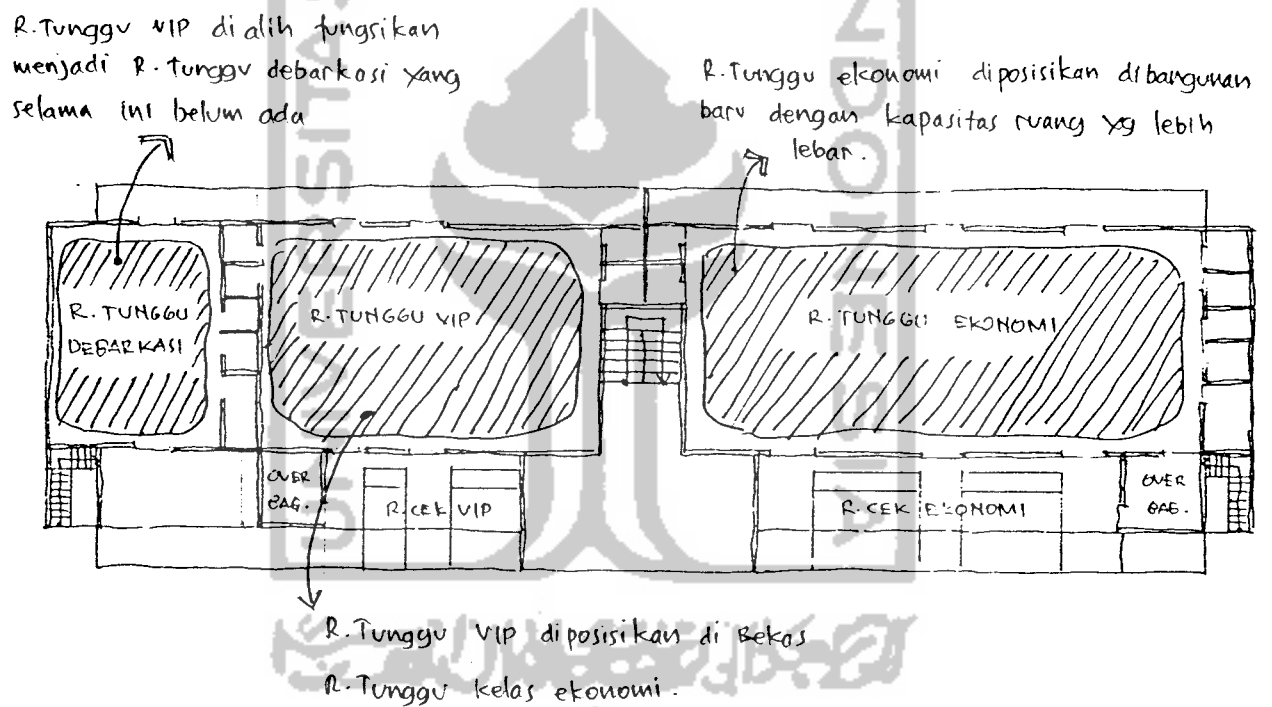 R.Tunggu VIP di alih fungsikan
menjadi R.Tunggu debarkasi yang
selama ini belum ada
R.Tunggu ekonomi diposisikan dibangunan
baru dengan kapasitas ruang yg lebih
lebar.
R. TUNGGU
DEBARKASI
R. TUNGGU VIP
R. TUNGGU EKONOMI
OVER
BAG.
R.CEK VIP
R. CEK EKONOMI
OVER
BAG.
R.Tunggu VIP diposisikan di Bekas
R.Tunggu kelas ekonomi.
UNIVERSITAS
INDONESIA